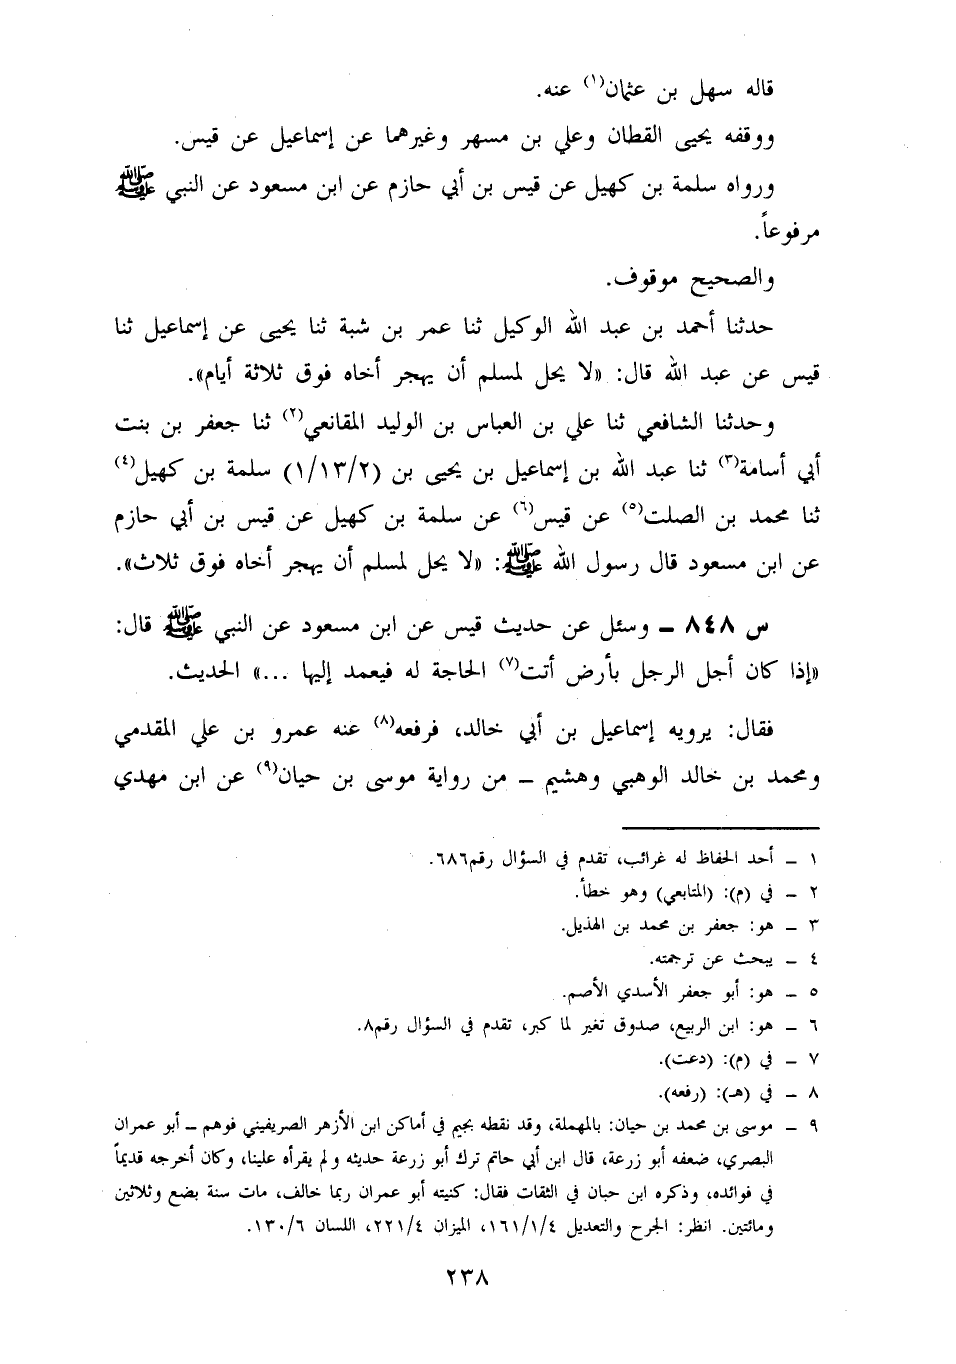 قاله سهل بن عثمان(١) عنه.
ووقفه يحيى القطان وعلي بن مسهر وغيرهما عن إسماعيل عن قيس.
ورواه سلمة بن كهيل عن قيس بن أبي حازم عن ابن مسعود عن النبي ﷺ
مرفوعاً.
والصحيح موقوف.
حدثنا أحمد بن عبد الله الوكيل ثنا عمر بن شبة ثنا يحيى عن إسماعيل ثنا
قيس عن عبد الله قال: «لا يحل لمسلم أن يهجر أخاه فوق ثلاثة أيام».
وحدثنا الشافعي ثنا علي بن العباس بن الوليد المقانعي(٢) ثنا جعفر بن بنت
أبي أسامة(٣) ثنا عبد الله بن إسماعيل بن يحيى بن (١/١٣/٢) سلمة بن كهيل(٤)
ثنا محمد بن الصلت(٥) عن قيس(٦) عن سلمة بن كهيل عن قيس بن أبي حازم
عن ابن مسعود قال رسول الله ﷺ: «لا يحل لمسلم أن يهجر أخاه فوق ثلاث».
س ٨٤٨ – وسئل عن حديث قيس عن ابن مسعود عن النبي ﷺ قال:
«إذا كان أجل الرجل بأرض أتت(٧) الحاجة له فيعمد إليها ...» الحديث.
فقال: يرويه إسماعيل بن أبي خالد، فرفعه(٨) عنه عمرو بن علي المقدمي
ومحمد بن خالد الوهبي وهشيم – من رواية موسى بن حيان(٩) عن ابن مهدي
١ – أحد الحفاظ له غرائب، تقدم في السؤال رقم٦٨٦.
٢ – في (م): (المتابعي) وهو خطأ.
٣ – هو: جعفر بن محمد بن الهذيل.
٤ – يبحث عن ترجمته.
٥ – هو: أبو جعفر الأسدي الأصم.
٦ – هو: ابن الربيع، صدوق تغير لما كبر، تقدم في السؤال رقم٨.
٧ – في (م): (دعت).
٨ – في (هـ): (رفعه).
٩ – موسى بن محمد بن حيان: بالمهملة، وقد نقطه بجيم في أماكن ابن الأزهر الصريفيني فوهم – أبو عمران
البصري، ضعفه أبو زرعة، قال ابن أبي حاتم ترك أبو زرعة حديثه ولم يقرأه علينا، وكان أخرجه قديماً
في فوائده، وذكره ابن حبان في الثقات فقال: كنيته أبو عمران ربما خالف، مات سنة بضع وثلاثين
ومائتين. انظر: الجرح والتعديل ١٦١/١/٤، الميزان ٢٢١/٤، اللسان ١٣٠/٦.
٢٣٨